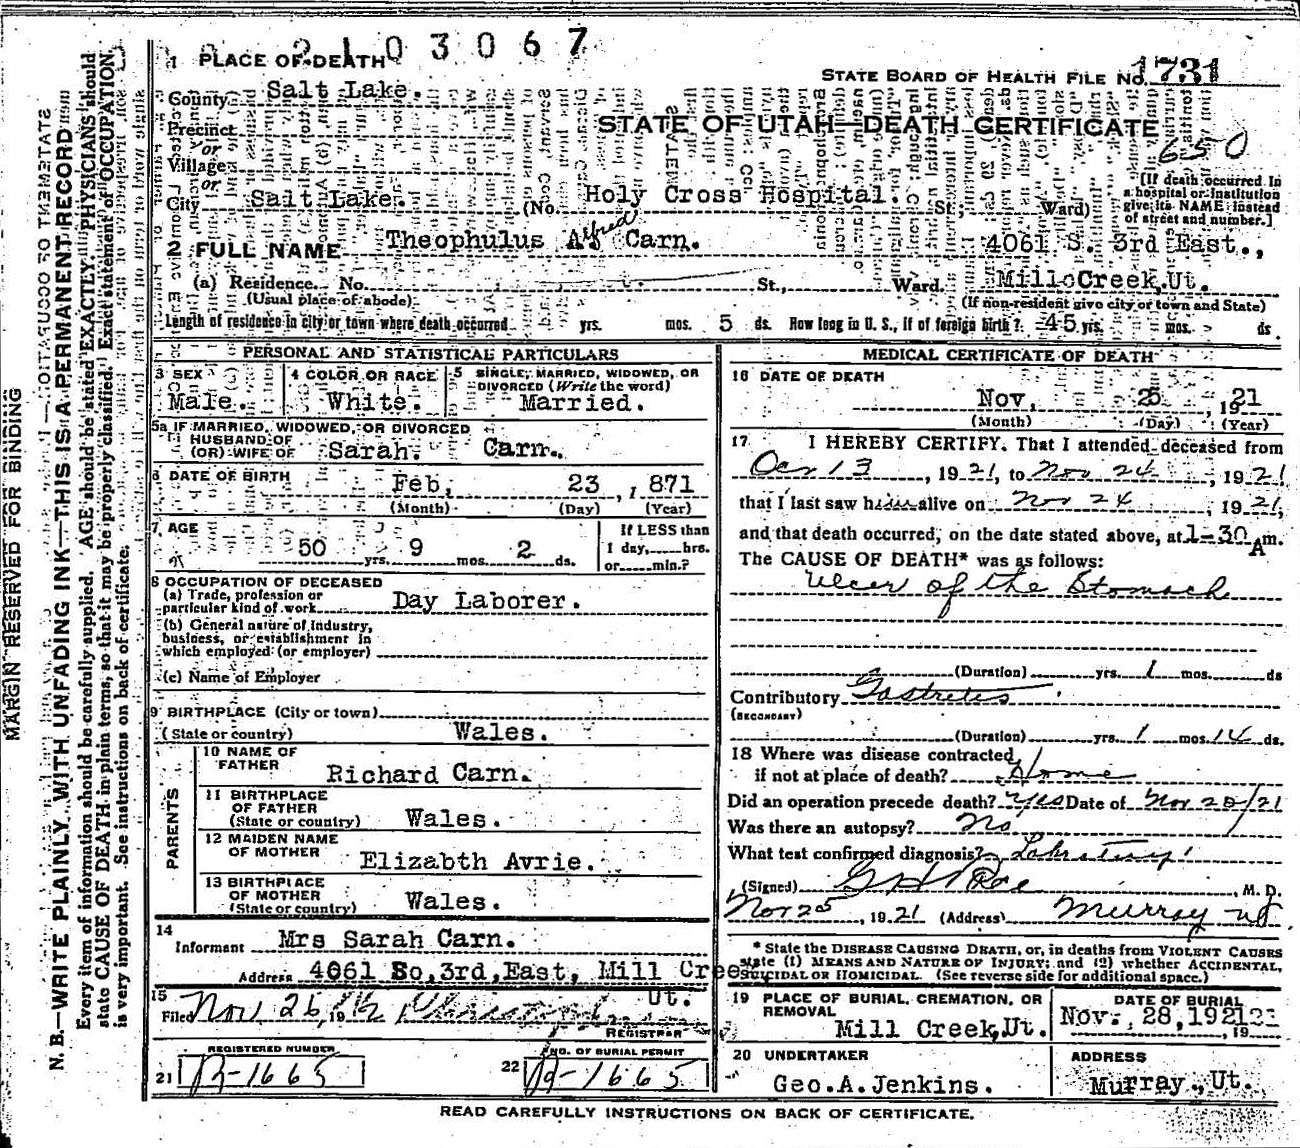 2103067
1 PLACE OF DEATH
STATE BOARD OF HEALTH FILE No. 1731
County Salt Lake.
STATE OF UTAH—DEATH CERTIFICATE
Precinct
or
Village
650
or
City Salt Lake. (No. Holy Cross Hospital. St., Ward)
[If death occurred in a hospital or institution give its NAME instead of street and number.]
2 FULL NAME Theophulus Alfred Carn. 4061 S. 3rd East.,
(a) Residence. No. St., Ward. Mill Creek,Ut.
(Usual place of abode) (If non-resident give city or town and State)
Length of residence in city or town where death occurred yrs. mos. 5 ds. How long in U. S., if of foreign birth? 45 yrs. mos. ds.
PERSONAL AND STATISTICAL PARTICULARS
3 SEX Male.
4 COLOR OR RACE White.
5 SINGLE, MARRIED, WIDOWED, OR DIVORCED (Write the word) Married.
5a IF MARRIED, WIDOWED, OR DIVORCED
HUSBAND OF
(OR) WIFE OF Sarah. Carn.
6 DATE OF BIRTH Feb, 23 ,1871
(Month) (Day) (Year)
7 AGE 50 yrs. 9 mos. 2 ds.
If LESS than
1 day, hrs.
or min.?
8 OCCUPATION OF DECEASED
(a) Trade, profession or
particular kind of work Day Laborer.
(b) General nature of industry,
business, or establishment in
which employed (or employer)
(c) Name of Employer
9 BIRTHPLACE (City or town)
(State or country) Wales.
PARENTS
10 NAME OF
FATHER Richard Carn.
11 BIRTHPLACE
OF FATHER
(State or country) Wales.
12 MAIDEN NAME
OF MOTHER Elizabth Avrie.
13 BIRTHPLACE
OF MOTHER
(State or country) Wales.
14
Informant Mrs Sarah Carn.
Address 4061 So,3rd,East, Mill Cree
Ut.
15
Filed Nov 26, 19
REGISTRAR
REGISTERED NUMBER
21 B-1665
NO. OF BURIAL PERMIT
22 B-1665
MEDICAL CERTIFICATE OF DEATH
16 DATE OF DEATH
Nov, 25 , 1921
(Month) (Day) (Year)
17 I HEREBY CERTIFY, That I attended deceased from
Oct 13, 1921, to Nov 24, 1921
that I last saw him alive on Nov 24, 1921,
and that death occurred, on the date stated above, at 1-30 A m.
The CAUSE OF DEATH* was as follows:
Ulcer of the Stomach
(Duration) yrs. 1 mos. ds
Contributory Gastretes
(SECONDARY)
(Duration) yrs. 1 mos. 14 ds.
18 Where was disease contracted
if not at place of death? Home
Did an operation precede death? Yes Date of Nov 25/21
Was there an autopsy? No
What test confirmed diagnosis?
(Signed) , M. D.
Nov 25, 1921 (Address) Murray Ut
* State the DISEASE CAUSING DEATH, or, in deaths from VIOLENT CAUSES
state (1) MEANS AND NATURE OF INJURY; and (2) whether ACCIDENTAL,
SUICIDAL OR HOMICIDAL. (See reverse side for additional space.)
19 PLACE OF BURIAL, CREMATION, OR
REMOVAL Mill Creek,Ut.
DATE OF BURIAL
Nov. , 28,1921
20 UNDERTAKER
Geo.A.Jenkins.
ADDRESS
Murray.,Ut.
READ CAREFULLY INSTRUCTIONS ON BACK OF CERTIFICATE.
MARGIN RESERVED FOR BINDING
N. B.—WRITE PLAINLY, WITH UNFADING INK—THIS IS A PERMANENT RECORD
Every item of information should be carefully supplied. AGE should be stated EXACTLY. PHYSICIANS should
state CAUSE OF DEATH in plain terms, so that it may be properly classified. Exact statement of OCCUPATION
is very important. See instructions on back of certificate.